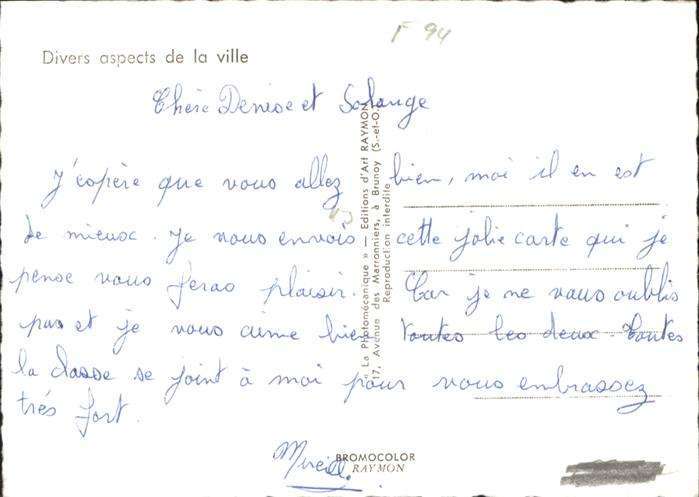 F 94
Divers aspects de la ville
Chère Denise et Solange
J'éspère que vous allez bien, moi il en est
de mieux. Je vous envois cette jolie carte qui je
pense vous feras plaisir. Car je ne vous oublis
pas et je vous aime bien toutes les deux. Toutes
la classe se joint à moi pour vous embrassez
trés fort.
Mireille.
« La Photomécanique » - Editions d'Art RAYMON
17, Avenue des Marronniers, à Brunoy (S.-et-O.)
Reproduction interdite
BROMOCOLOR
RAYMON